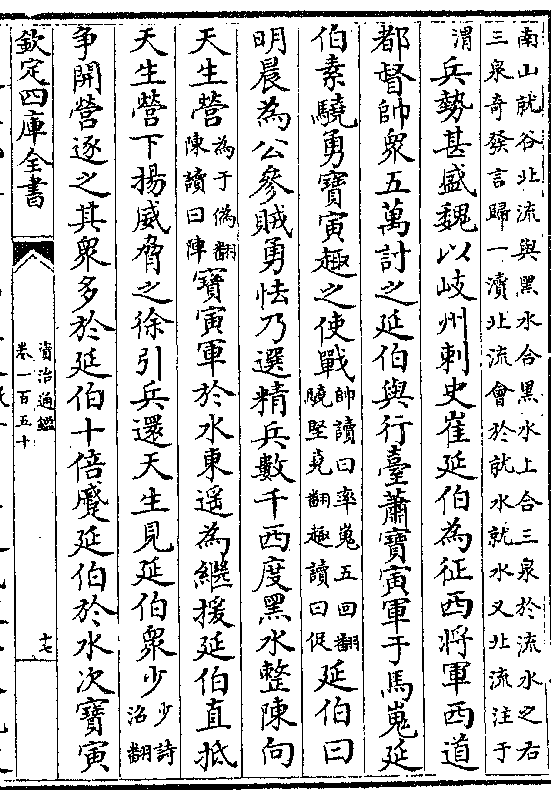 南山就谷北流與黒水合黒水上合三泉於流水之右
三泉奇發言歸一瀆北流會於就水就水又北流注于
渭兵勢甚盛魏以岐州刺史崔延伯為征西將軍西道
都督帥衆五萬討之延伯與行臺蕭寶寅軍于馬嵬延
伯素驍勇寶寅趣之使戰帥讀曰率嵬五回翻驍堅堯翻趣讀曰促延伯曰
明晨為公參賊勇怯乃選精兵數千西度黑水整陳向
天生營為于偽翻陳讀曰陣寶寅軍於水東遥為繼援延伯直抵
天生營下揚威脅之徐引兵還天生見延伯衆少少詩沼翻
争開營逐之其衆多於延伯十倍蹙延伯於水次寶寅
欽定四庫全書
資治通鑑
卷一百五十
十七